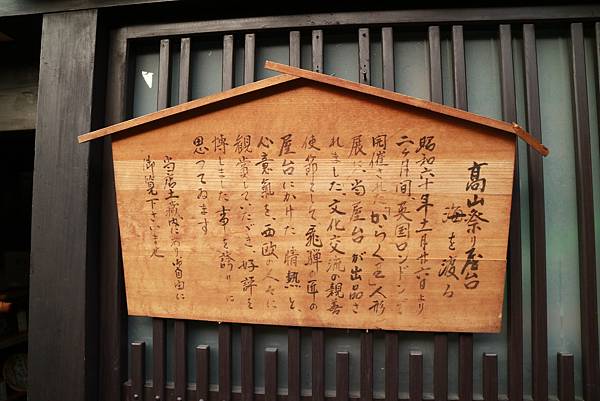 高山祭り屋台
海を渡る
昭和六十年二月廿六日より
二ヶ月間、英国ロンドンで
開催された「からくり人形
展」に当屋台が出品さ
れました、文化交流の親善
使節として飛騨の匠の
屋台にかけた情熱と、
心意氣を西欧の人々に
観賞していたゞき、好評を
博しました事を誇りに
思つてゐます
当店土蔵内にあり御自由に
御覧下さいませ